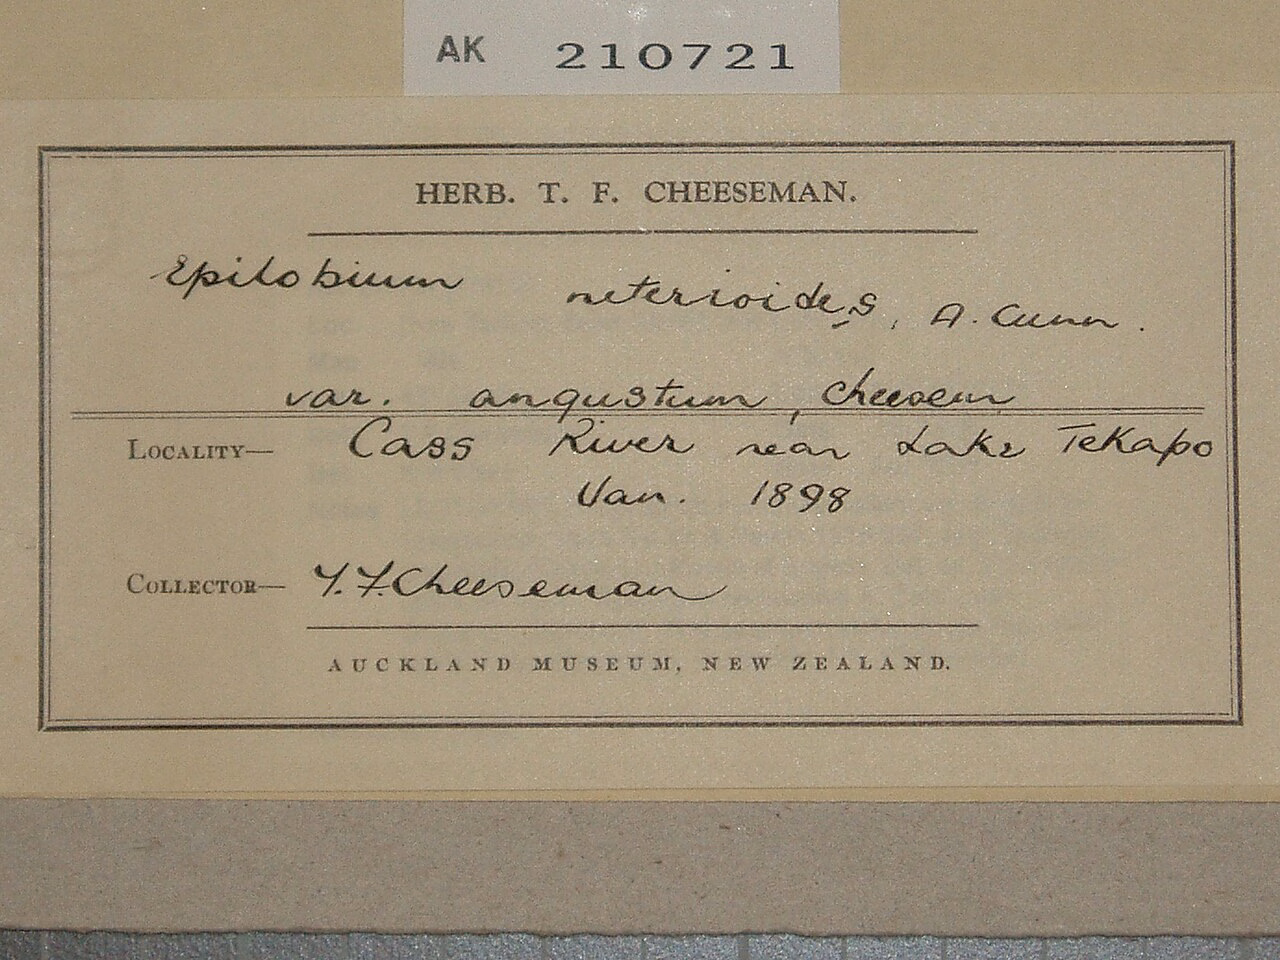 AK 210721
HERB. T. F. CHEESEMAN.
Epilobium neterioides, A. Cunn.
var. angustum, Cheesem
LOCALITY— Cass River near Lake Tekapo
Jan. 1898
COLLECTOR— T.F.Cheeseman
AUCKLAND MUSEUM, NEW ZEALAND.